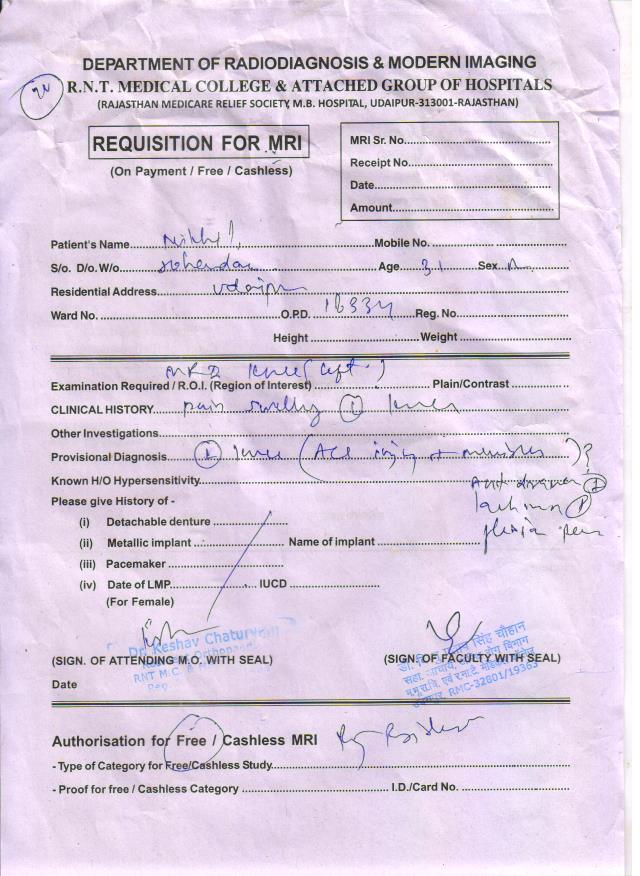 DEPARTMENT OF RADIODIAGNOSIS & MODERN IMAGING
R.N.T. MEDICAL COLLEGE & ATTACHED GROUP OF HOSPITALS
(RAJASTHAN MEDICARE RELIEF SOCIETY, M.B. HOSPITAL, UDAIPUR-313001-RAJASTHAN)
REQUISITION FOR MRI
(On Payment / Free / Cashless)
MRI Sr. No.
Receipt No.
Date
Amount
Patient's Name Mobile No.
S/o. D/o. W/o Age 31 Sex M
Residential Address Udaipur
Ward No. O.P.D. 16334 Reg. No.
Height Weight
MRI Knee (Left)
Examination Required / R.O.I. (Region of Interest) Plain/Contrast
CLINICAL HISTORY pain swelling L knee
Other Investigations
Provisional Diagnosis L knee (ACL injury + meniscus)?
Known H/O Hypersensitivity
Please give History of -
(i) Detachable denture
(ii) Metallic implant Name of implant
(iii) Pacemaker
(iv) Date of LMP IUCD
(For Female)
Dr. Keshav Chaturvedi
RNT M.C.
(SIGN. OF ATTENDING M.O. WITH SEAL) (SIGN. OF FACULTY WITH SEAL)
सिंह चौहान
RMC-32801/19363
Date
Authorisation for Free / Cashless MRI
- Type of Category for Free/Cashless Study
- Proof for free / Cashless Category I.D./Card No.